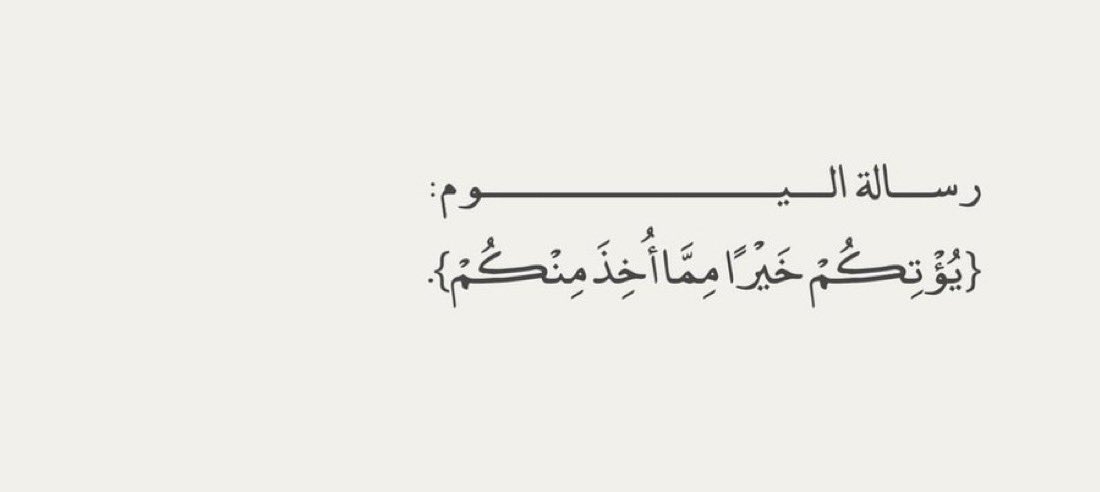 رســـالة الـــيـــــــــــــــــــــــــوم:
{يُؤْتِكُمْ خَيْرًا مِمَّا أُخِذَ مِنْكُمْ}.